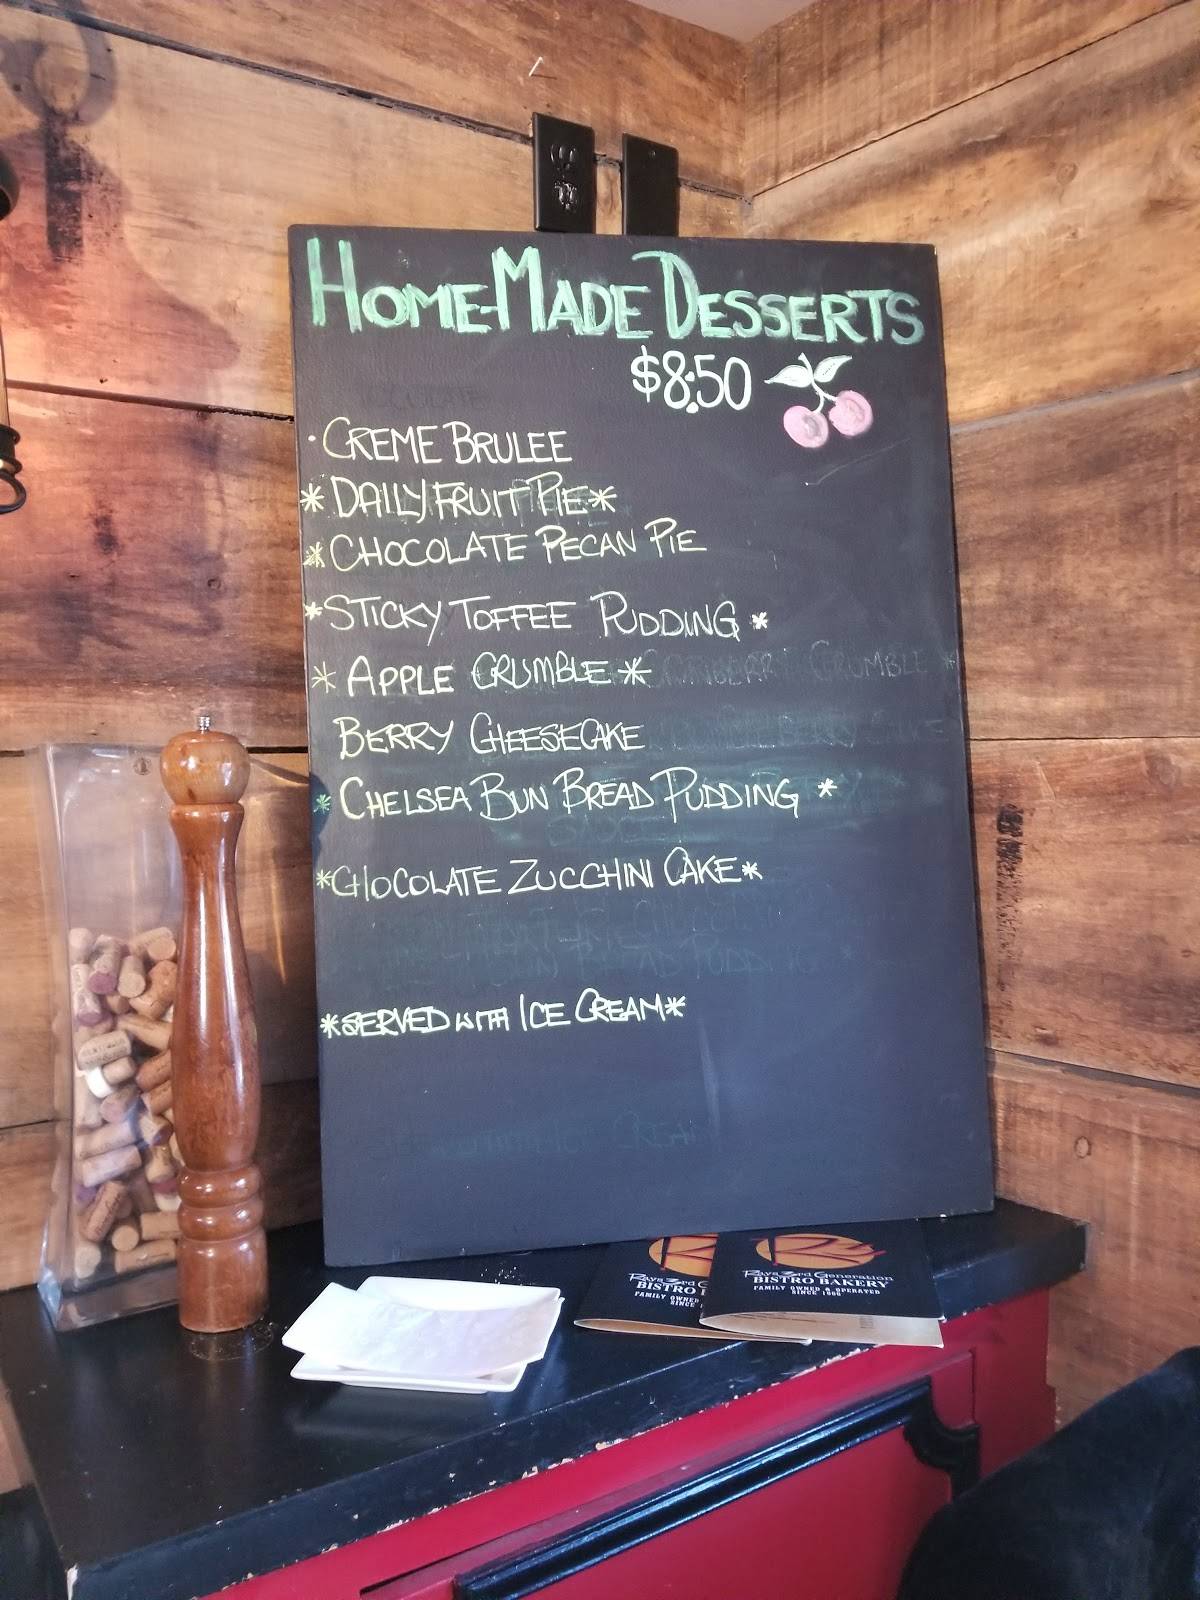 HOME-MADE DESSERTS
$8.50
· CREME BRULEE
* DAILY FRUIT PIE *
* CHOCOLATE PECAN PIE
* STICKY TOFFEE PUDDING *
* APPLE CRUMBLE * CRANBERRY CRUMBLE *
BERRY CHEESECAKE
* CHELSEA BUN BREAD PUDDING *
SAUCE
* CHOCOLATE ZUCCHINI CAKE *
BREAD PUDDING *
* SERVED WITH ICE CREAM *
ICE CREAM
Rays 3rd G
BISTRO
FAMILY OWNED
SINCE
Rays 3rd Generation
BISTRO BAKERY
FAMILY OWNED & OPERATED
SINCE 1966